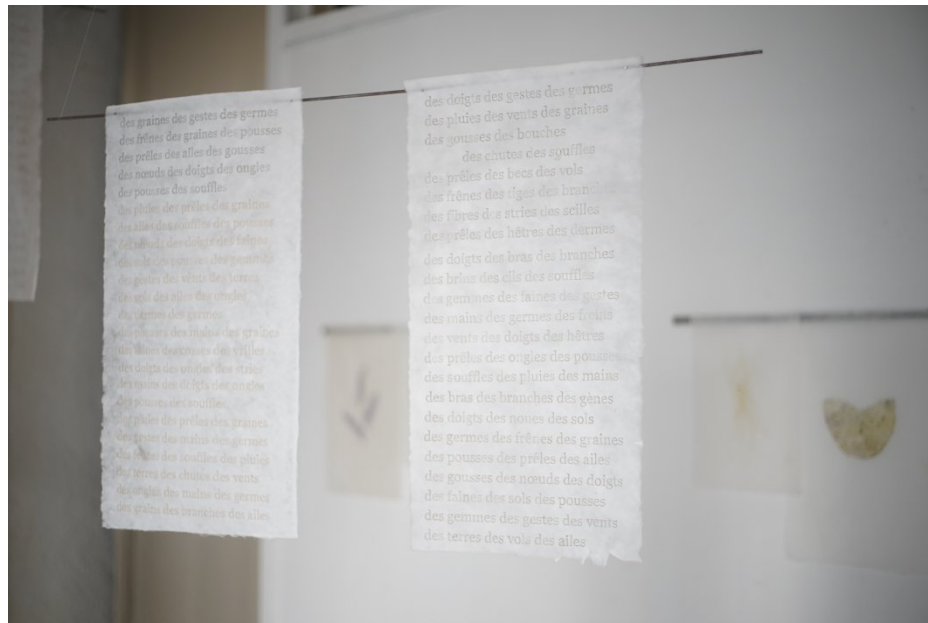 des graines des gestes des germes
des frênes des graines des pousses
des prêles des ailes des gousses
des nœuds des doigts des ongles
des pousses des souffles
des pluies des prêles des graines
des ailes des souffles des pousses
des nœuds des doigts des faines
des sols des pousses des gemmes
des gestes des vents des terres
des sols des ailes des ongles
des germes
des mains des graines
des vrilles
des doigts des ongles des stries
des mains des doigts des ongles
des pousses des souffles
des pluies des prêles des graines
des gestes des mains des germes
des souffles des pluies
des terres des chutes des vents
des ongles des mains des germes
des grains des branches des ailes
des doigts des gestes des germes
des pluies des vents des graines
des gousses des bouches
des chutes des souffles
des prêles des becs des vols
des frênes des tiges des branches
des fibres des stries des scilles
des prêles des hêtres des dermes
des doigts des bras des branches
des brins des cils des souffles
des gemmes des faines des gestes
des mains des germes des freins
des vents des doigts des hêtres
des prêles des ongles des pousses
des souffles des pluies des mains
des bras des branches des gènes
des doigts des noues des sols
des germes des frênes des graines
des pousses des prêles des ailes
des gousses des nœuds des doigts
des faines des sols des pousses
des gemmes des gestes des vents
des terres des vols des ailes